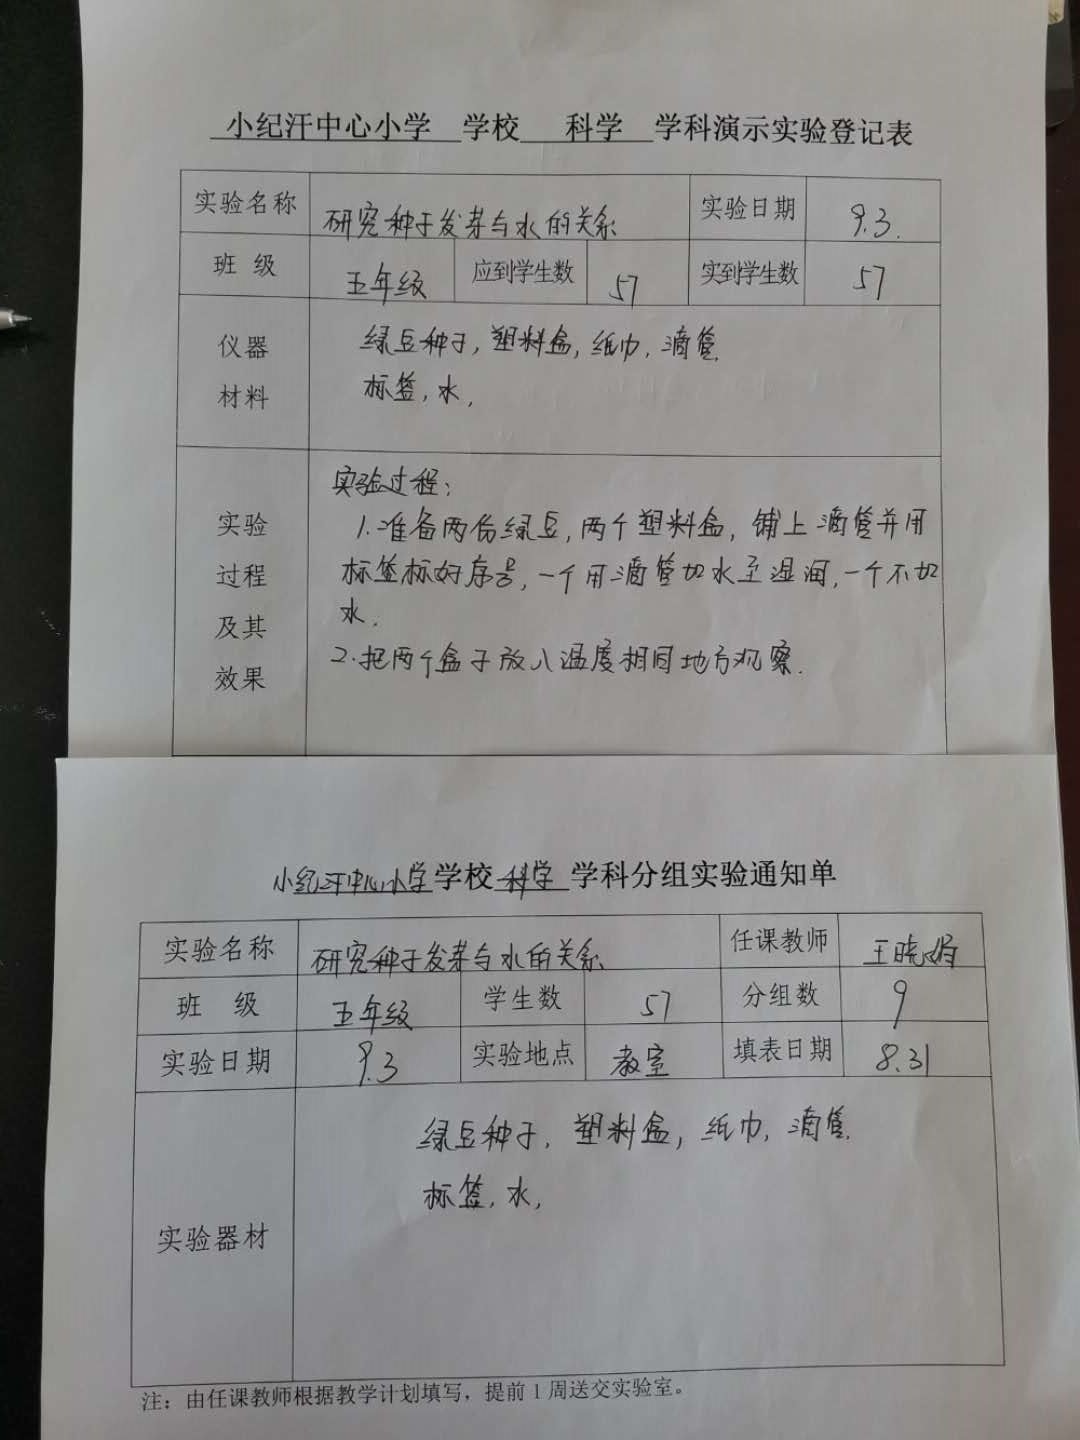 小纪汗中心小学 学校 科学 学科演示实验登记表
实验名称 研究种子发芽与水的关系 实验日期 9.3.
班 级 五年级 应到学生数 57 实到学生数 57
仪器 材料
绿豆种子,塑料盒,纸巾,滴管
标签,水,
实验 过程 及其 效果
实验过程:
1.准备两份绿豆,两个塑料盒,铺上滴管并用
标签标好序号,一个用滴管加水至湿润,一个不加
水.
2.把两个盒子放入温度相同地方观察.
小纪汗中心小学学校 科学 学科分组实验通知单
实验名称 研究种子发芽与水的关系 任课教师 王晓娟
班 级 五年级 学生数 57 分组数 9
实验日期 9.3 实验地点 教室 填表日期 8.31
实验器材
绿豆种子,塑料盒,纸巾,滴管.
标签,水,
注:由任课教师根据教学计划填写,提前1周送交实验室。